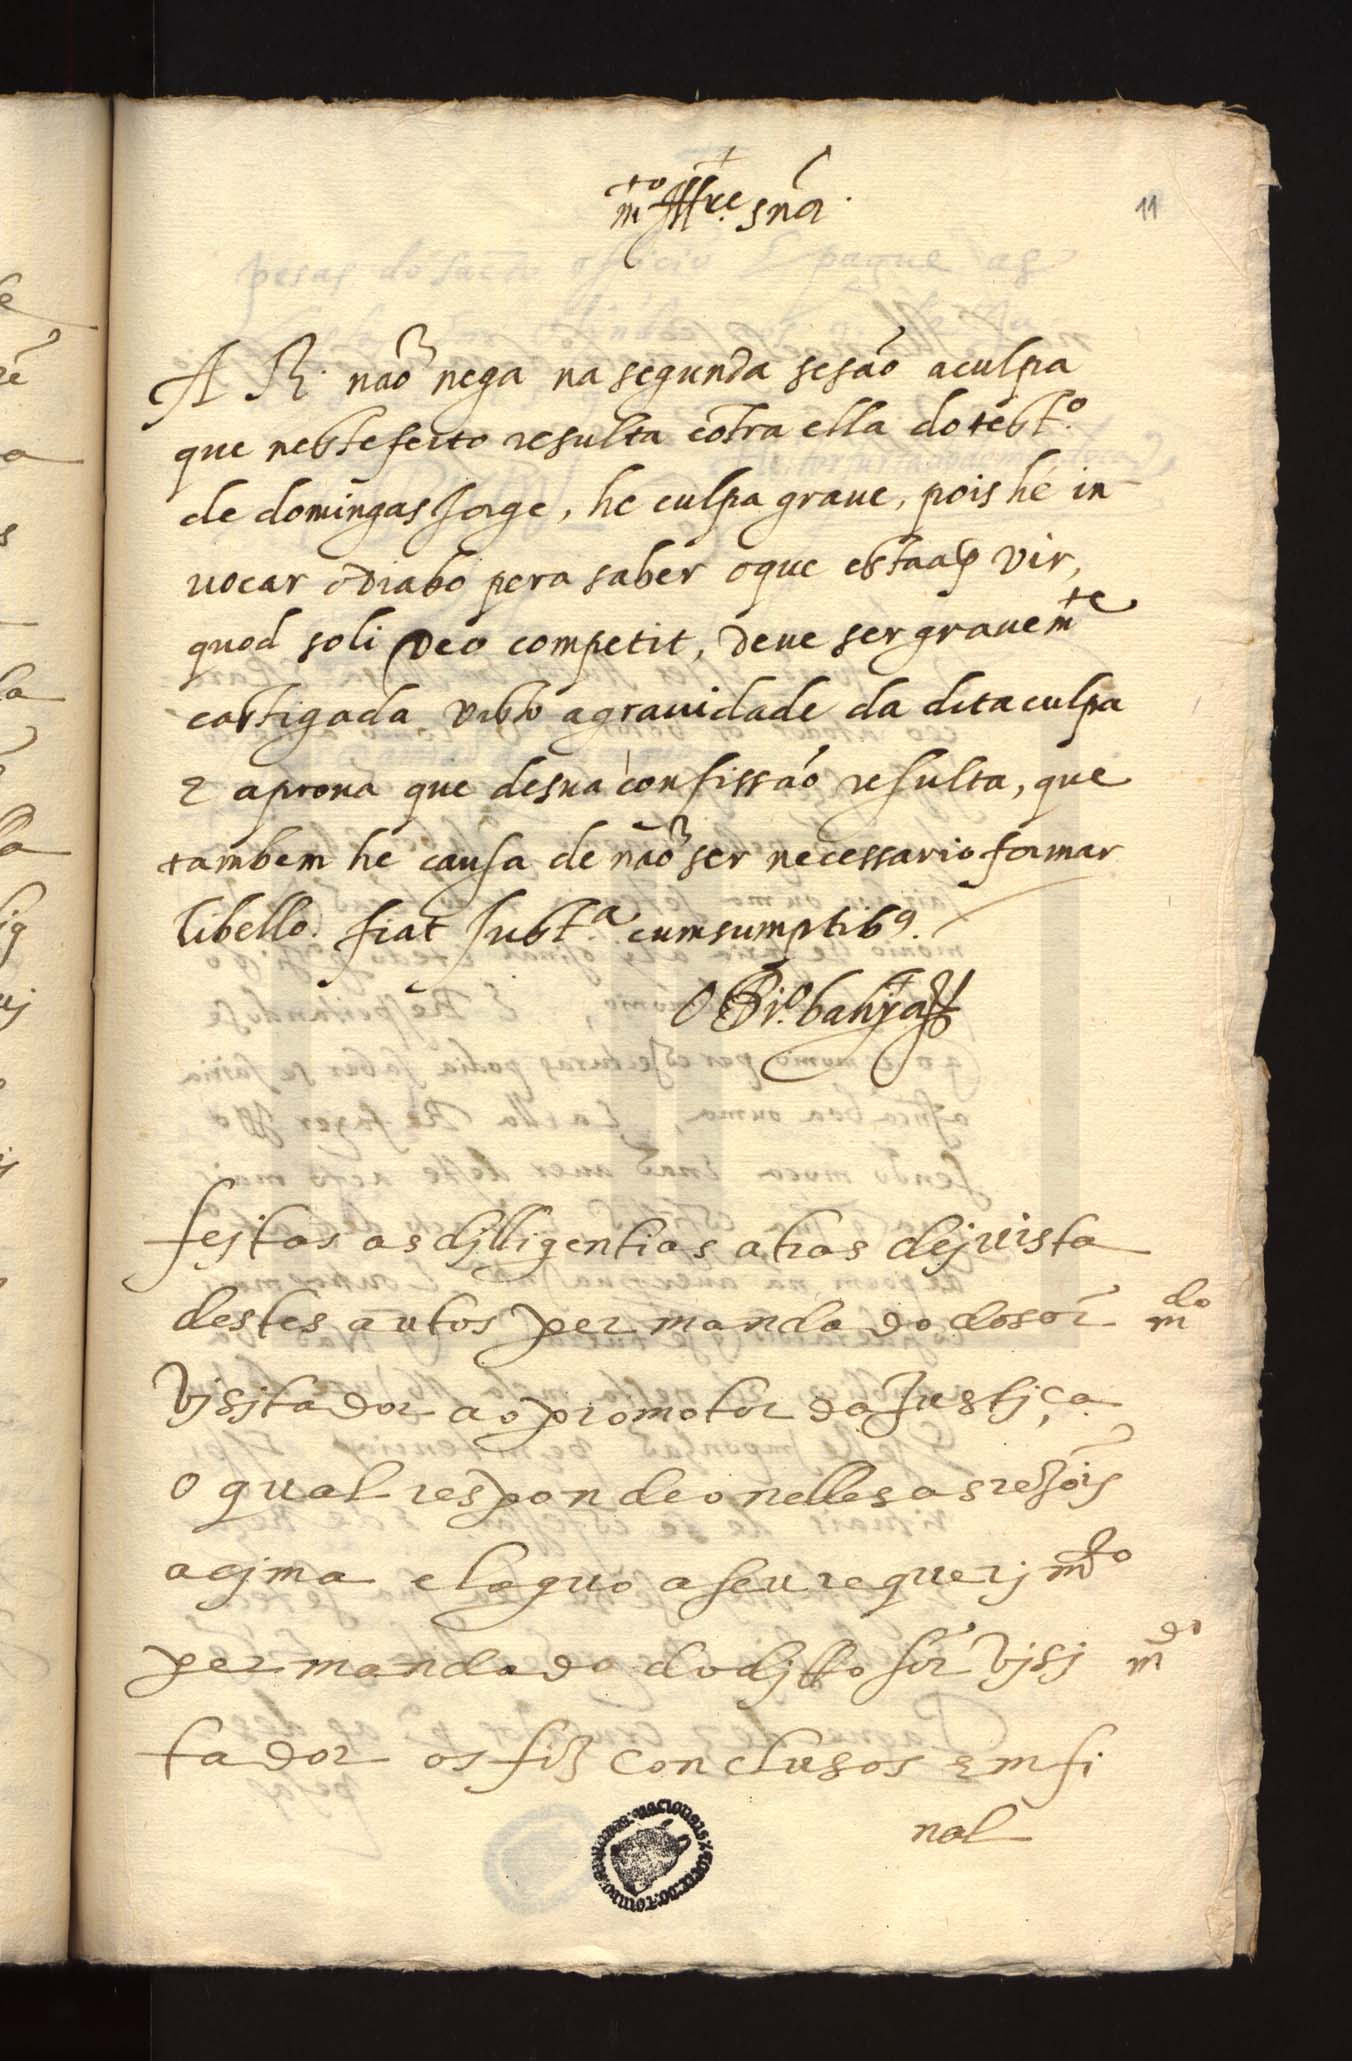 +
m.to Ill.re snõr
11
A R. não nega na segunda sesão a culpa
que neste feito resulta cõtra ella do test.o
de domingas Jorge, he culpa graue, pois he in-
uocar o diabo pera saber o que esta a por vir,
quod soli Deo competit, deue ser grauem.te
castigada visto a grauidade da dita culpa
E a proua que de sua confissão resulta, que
tambem he causa de não ser necessario formar
libello. fiat Just.a cum sumptib9.
fejtas as djlligentias atras dej uista
destes autos per mandado do sõr
m.do
Vjsjtador ao promotor da Justjça
o qual respondeo nelles as rezõis
acjma e loguo a seu requerjm.to
per mandado do djtto sõr Vjsj
m.do
tador os fiz conclusos Em fi
nal